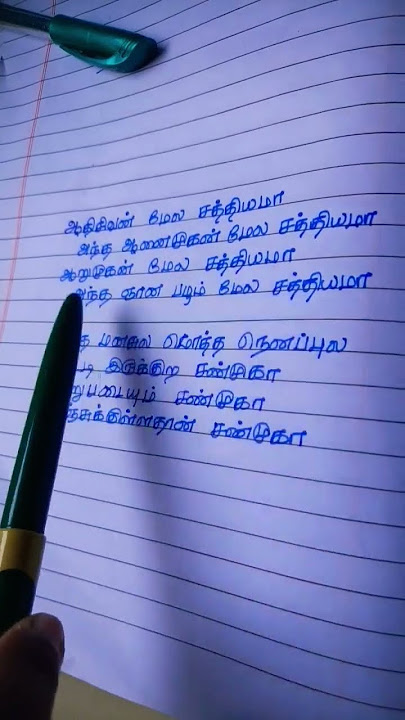 ஆதிசிவன் மேல சத்தியமா
அந்த ஆணைமுகன் மேல சத்தியமா
ஆறுமுகன் மேல சத்தியமா
அந்த ஞான பழம் மேல சத்தியமா
மனசுல மொத்த நெனப்புல
இருக்குற சண்முகா
சண்முகா
சண்முகா